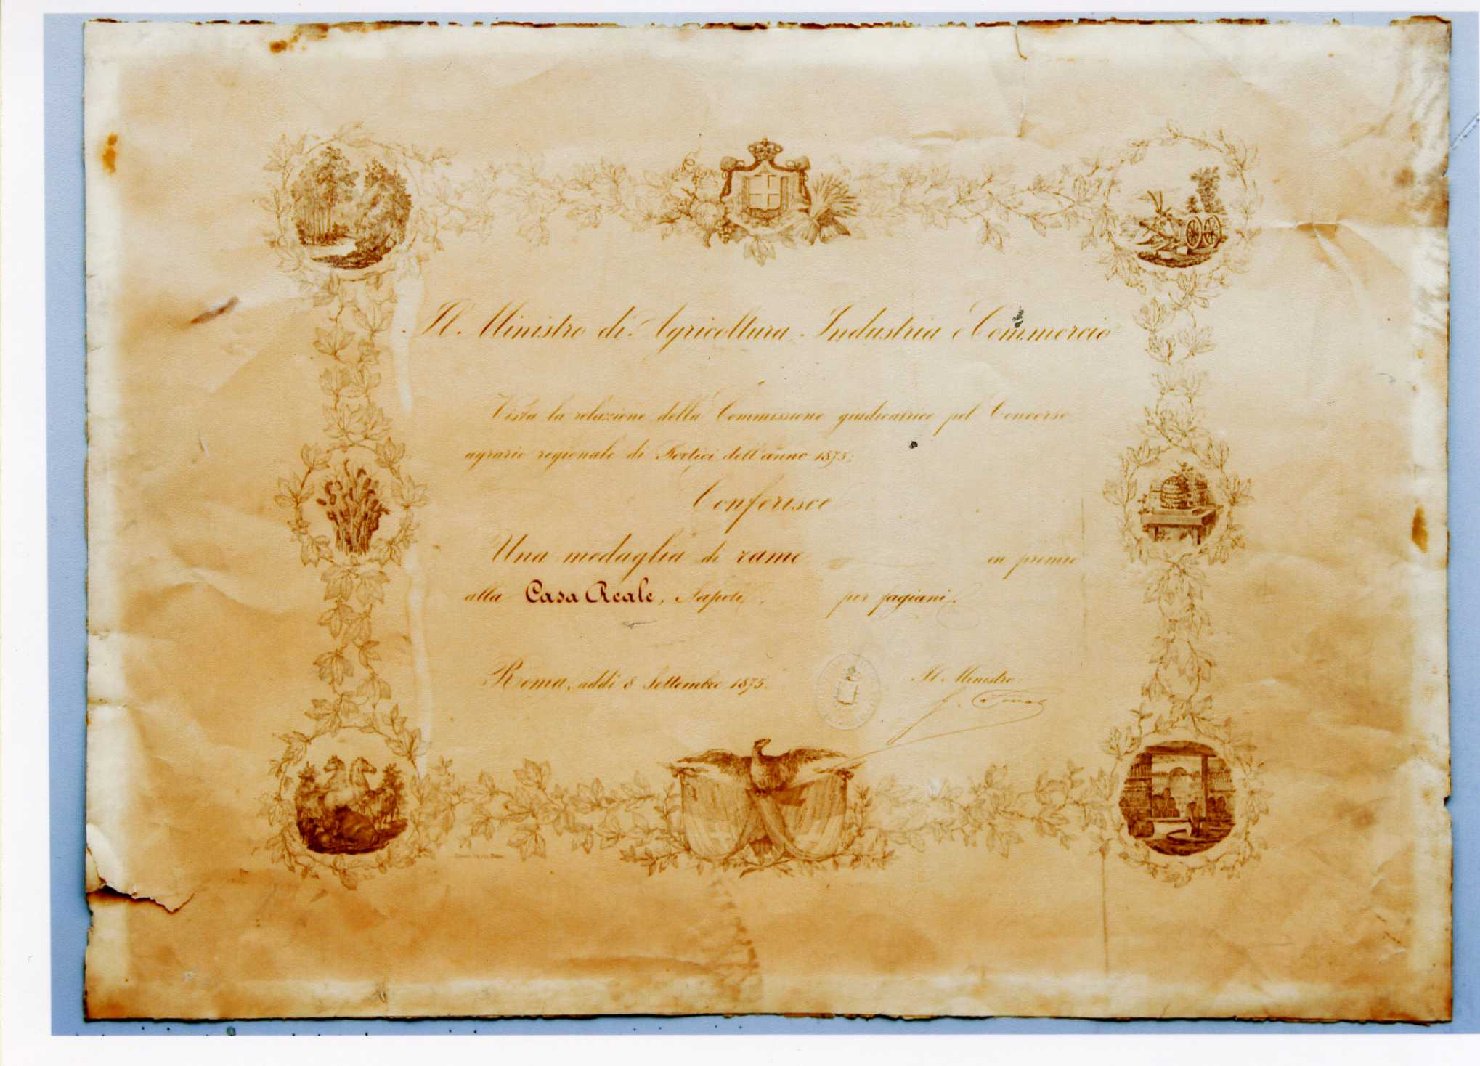 Il Ministro di Agricoltura Industria e Commercio
Vista la relazione della Commissione giudicatrice pel Concorso
agrario regionale di Portici dell'anno 1875;
Conferisce
Una medaglia di rame in premio
alla Casa Reale, Napoli, per fagiani.
Roma, addì 8 Settembre 1875.
Il Ministro